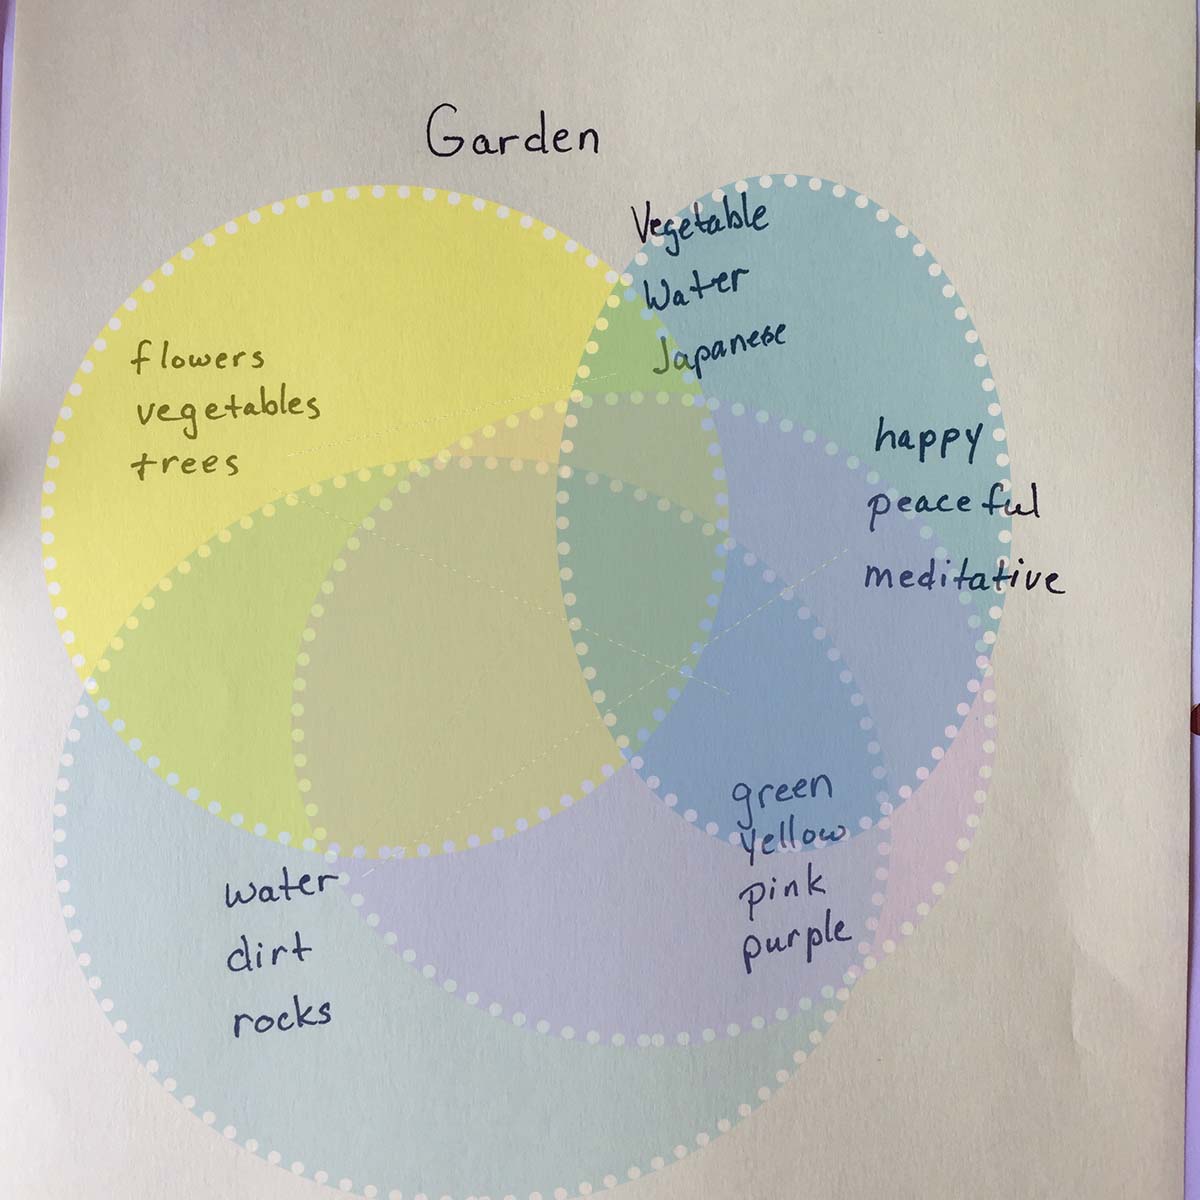 Garden
Vegetable
Water
Japanese
flowers
vegetables
trees
happy
peaceful
meditative
green
yellow
pink
purple
water
dirt
rocks